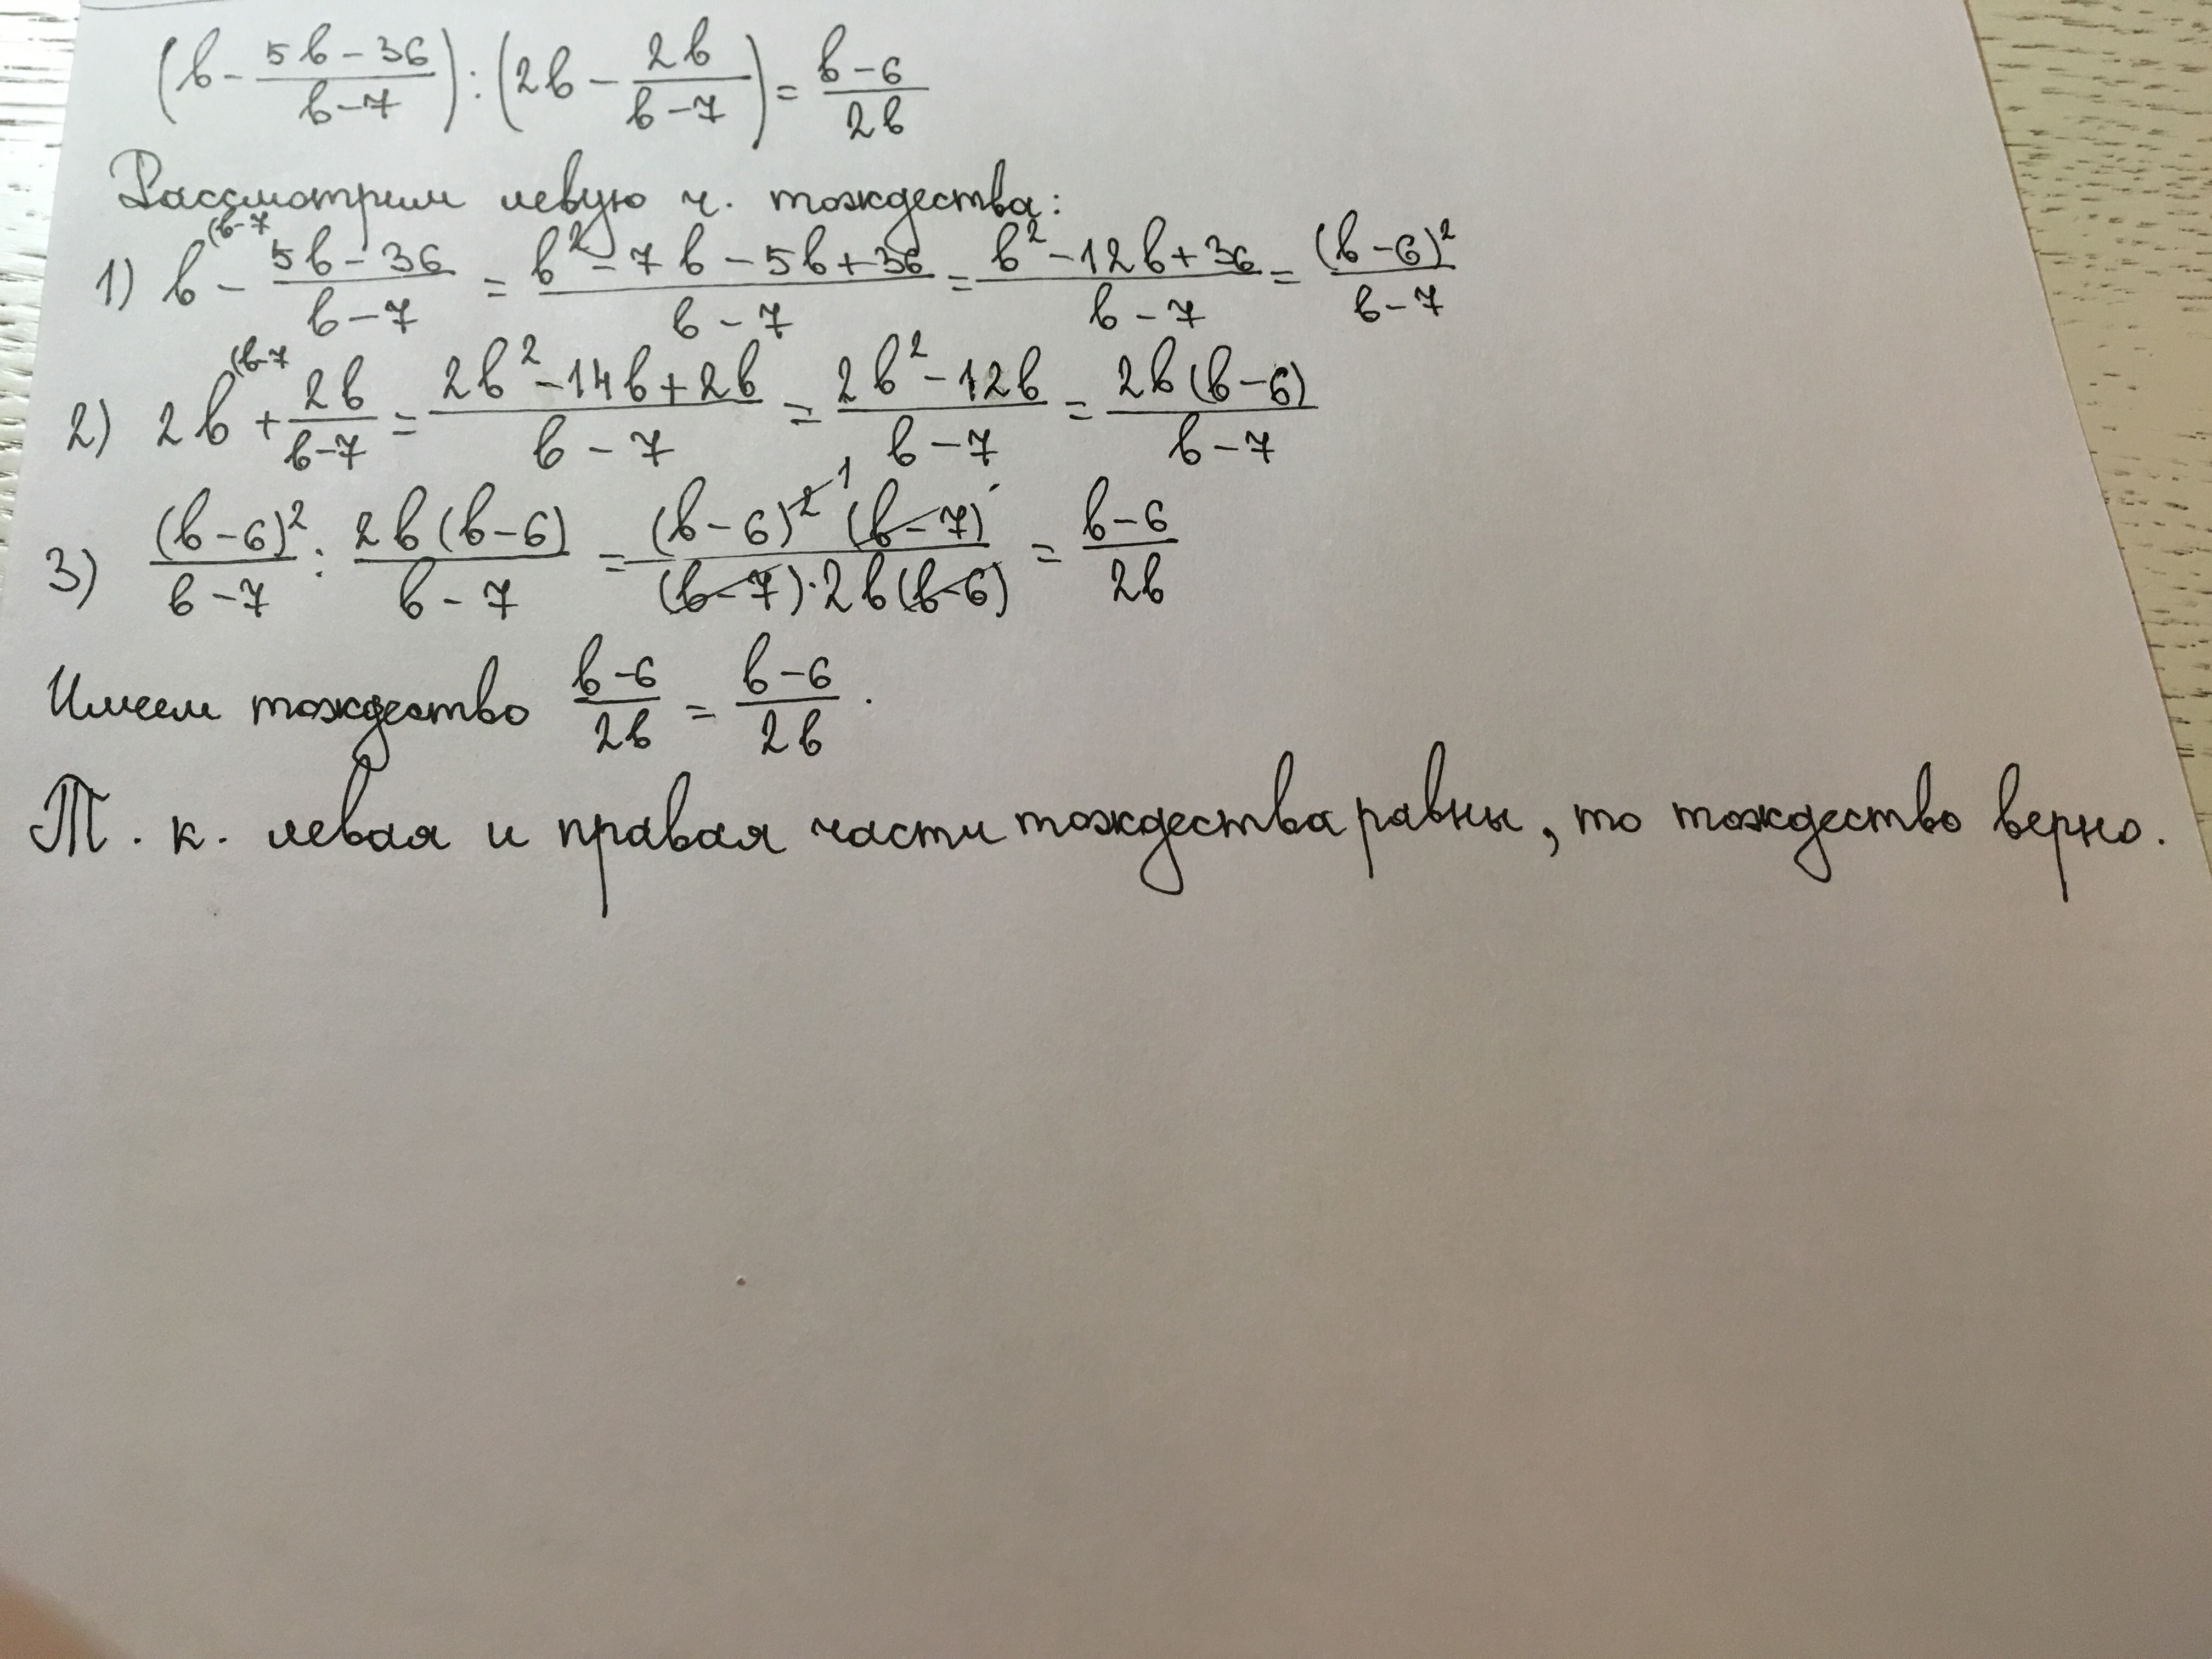 (b - (5b - 36)/(b - 7)) : (2b - 2b/(b - 7)) = (b - 6)/(2b)
Рассмотрим левую ч. тождества:
1) b^(b-7 - (5b - 36)/(b - 7) = (b² - 7b - 5b + 36)/(b - 7) = (b² - 12b + 36)/(b - 7) = (b - 6)²/(b - 7)
2) 2b^(b-7 + 2b/(b-7) = (2b² - 14b + 2b)/(b - 7) = (2b² - 12b)/(b - 7) = 2b(b - 6)/(b - 7)
3) (b - 6)²/(b - 7) : 2b(b - 6)/(b - 7) = (b - 6)²¹(b - 7)/((b - 7)·2b(b - 6)) = (b - 6)/(2b)
Имеем тождество (b - 6)/(2b) = (b - 6)/(2b).
Т. к. левая и правая части тождества равны, то тождество верно.